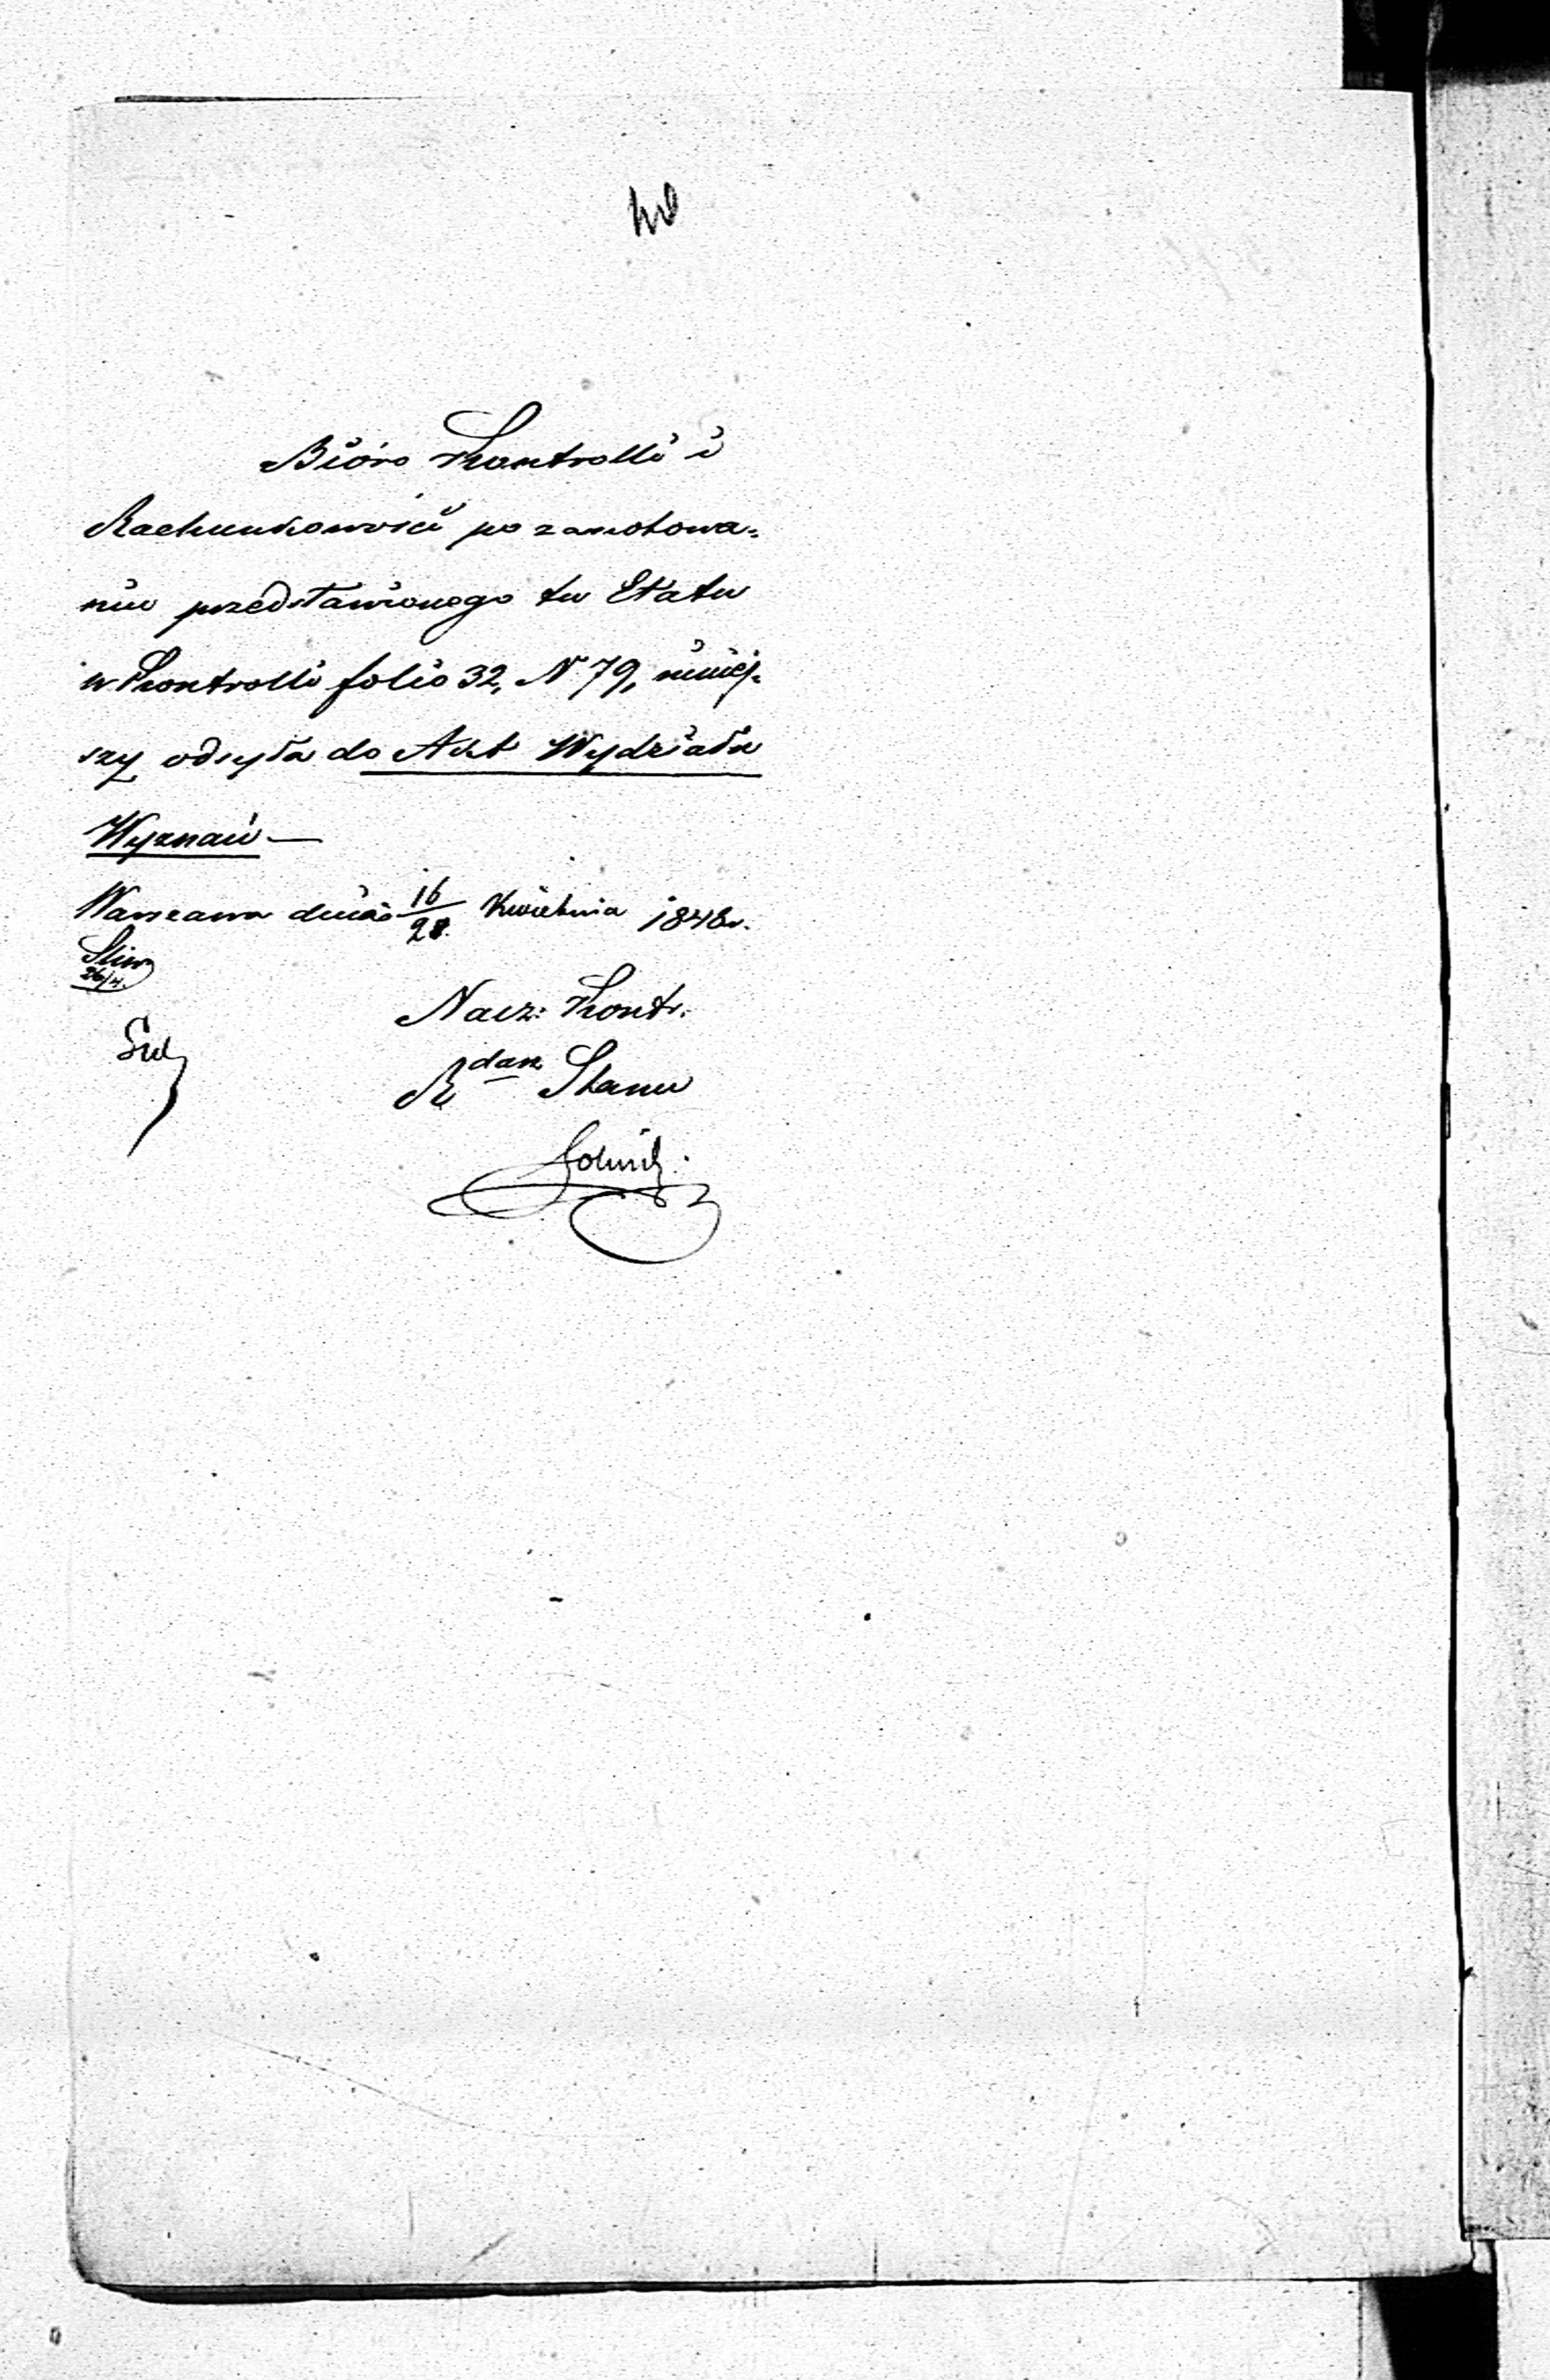 Bióro Kontrolli i
Rachunkowości po zanotowa-
niu przedstawionego tu Etatu
w Kontrolli folio 32, N 79, niniej-
szy odsyła do Akt Wydziału
Wyznań —
Warszawa dnia 16/28 Kwietnia 1848 r.
26/4.
Nacz: Kontr.
R dca Stanu